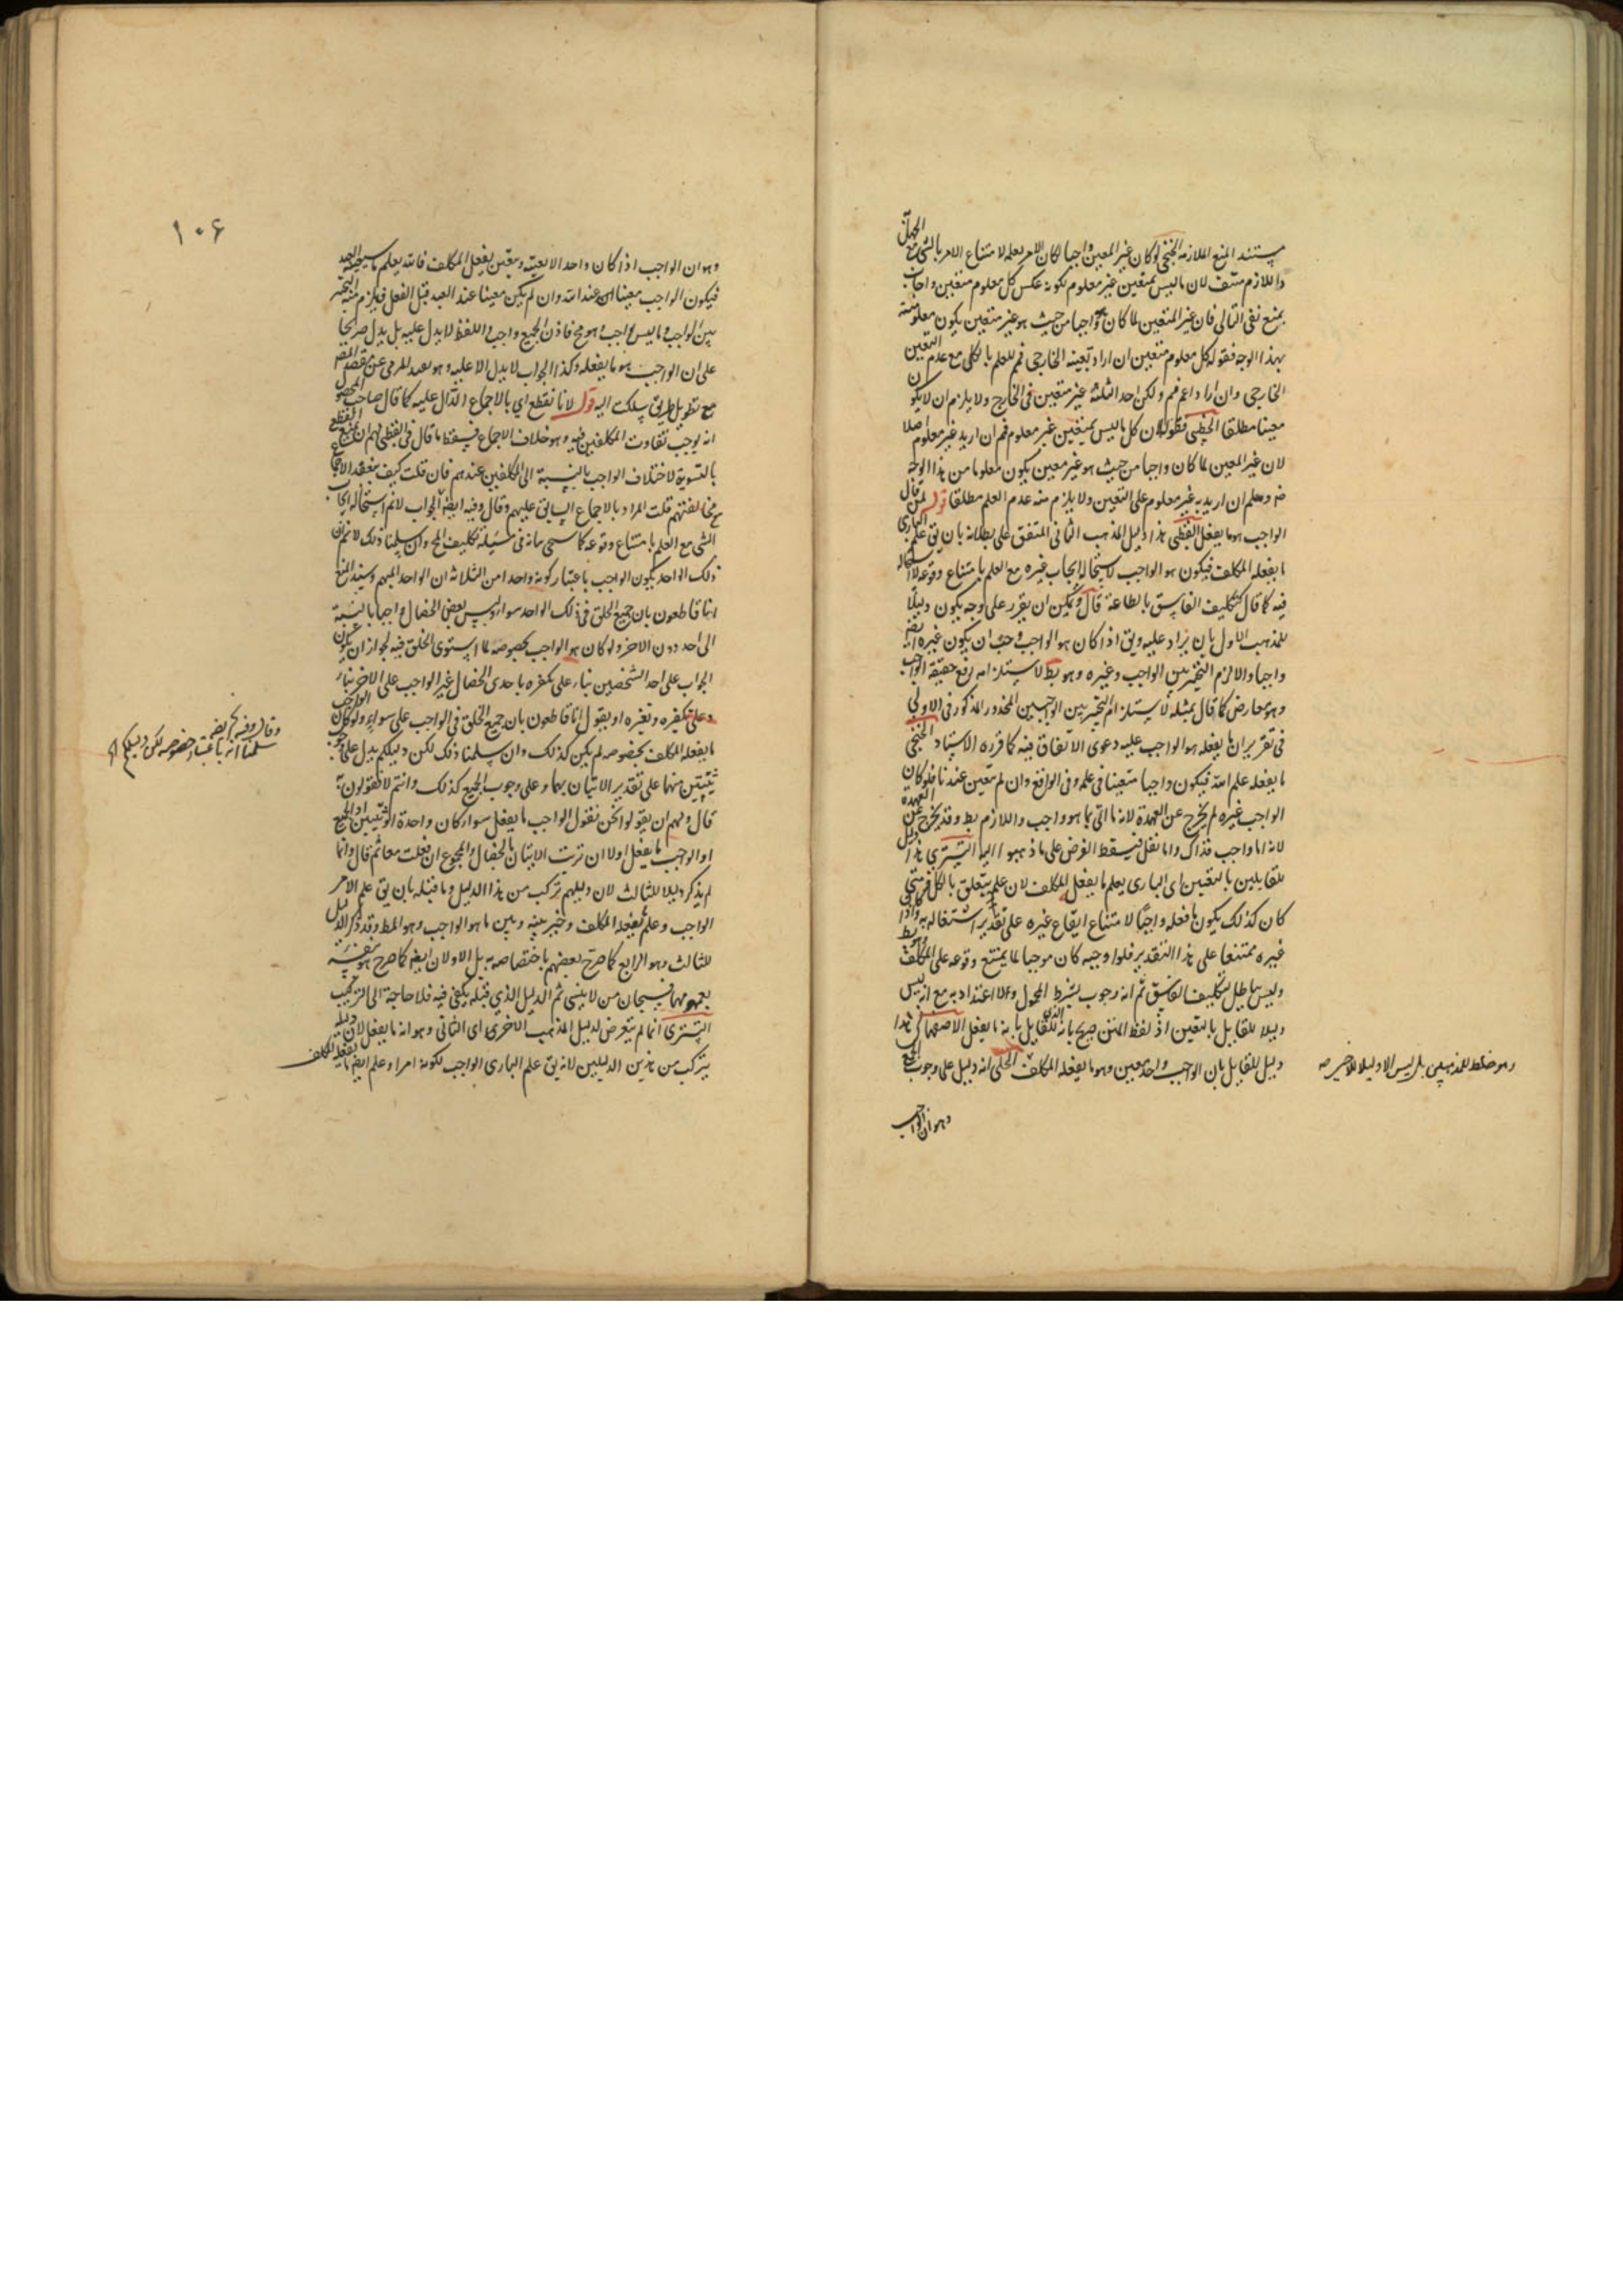 مستند المنع الملازمة الخنجي لو كان غير المعين واجبا لكان الآمر يعلمه لامتناع الامر بالشئ مع الجهل
واللازم منتف لان ما ليس بمتعين غير معلوم لكونه عكس كل معلوم متعين واجاب
بمنع نفى التالى فان غير المتعين لما كان واجبا من حيث هو غير متعين يكون معلوميته
بهذا الوجه فقوله كل معلوم متعين ان اراد تعينه الخارجى فمم للعلم بالكلى مع عدم التعين
الخارجى وان اراد اعم فمم ولكن احد الثلثة غير متعين فى الخارج ولا يلزم ان لا يكون
معينا مطلقا الخطبى فقوله لان كل ما ليس بمتعين غير معلوم فمم ان اريد غير معلوم اصلا
لان غير المعين لما كان واجبا من حيث هو غير معين يكون معلوما من هذا الوجه
ومعلم ان اريد به غير معلوم على التعين ولا يلزم منه عدم العلم مطلقا قوله من قال
الواجب هو ما يفعل القطبى هذا دليل المذهب الثانى المتفق على بطلانه بان يق علم البارى
ما يفعله المكلف فيكون هو الواجب لاستحالة ايجاب غيره مع العلم بامتناع وقوعه لا استحالة
فيه كما قال كتكليف الفاسق بالطاعة قال ويمكن ان يقرر على وجه يكون دليلا
للمذهب الاول بان يزاد عليه ويق اذا كان هو الواجب وجب ان يكون غيره ايضه
واجبا والا لزم التخيير بين الواجب وغيره وهو بط لاستلزامه رفع حقيقة الواجب
وهو معارض كما قال بمثله لاستلزام التخيير بين الواجبين المحذور المذكور فى الاولى
فى تقرير ان ما يفعله هو الواجب عليه دعوى الاتفاق فيه كما قرره الاستاد الخنجى
ما يفعله علم الله فيكون واجبا متعينا فى علمه وفى الواقع وان لم يتعين عندنا فلو كان
الواجب غيره لم يخرج عن العهدة لانه ما اتى بما هو واجب واللازم بط وقد يخرج عن العهدة
لانه اما واجب فذاك واما نفل فيسقط الفرض على ما ذهبوا اليه التسترى هذا دليل
للقايلين بالتعين اى البارى يعلم ما يفعل المكلف لان علمه يتعلق بالكل فمتى
كان كذلك يكون ما فعله واجبا لامتناع ايقاع غيره على تقدير اشتغاله به واذا كان
غيره ممتنعا على هذا التقدير فلو اوجبه كان موجبا لما يمتنع وقوعه على المكلف وهو بط
وليس بباطل لتكليف الفاسق ثم انه وجوب بشرط المحمول ولا اعتداد به مع انه ليس
دليلا للقايل بالتعين اذ لفظ المتن صريح بانه للقايل بانه ما يفعل الاصفهانى هذا
دليل للقايل بان الواجب واحد معين وهو ما يفعله المكلف الحلى انه دليل على وجوب الجميع
وهو خلط للمذهبين بل ليس الا دليلا للاخير صه
وهو ان الواجب
۱۰۶
وهو ان الواجب اذا كان واحد الا بعينه ويتعين بفعل المكلف فالله يعلم ما سيعينه العبد
فيكون الواجب معينا عند الله وان لم يكن معينا عند العبد قبل الفعل فيلزم منه التخيير
بين الواجب وما ليس بواجب وهو مح فاذن الجميع واجب واللفظ لا يدل عليه بل يدل صريحا
على ان الواجب هو ما يفعله وكذا الجواب لا يدل الا عليه وهو بعيد المرمى عن مقصد المقصد
مع تطويل طريق سلكت اليه قوله لانا نقطع اى بالاجماع الدال عليه كما قال صاحب المحصول
انه يوجب تفاوت المكلفين فيه وهو خلاف الاجماع فيسقط ما قال فى القطبى لهم ان يمنع القطع
بالتسوية لاختلاف الواجب بالنسبة الى المكلفين عندهم فان قلت كيف ينعقد الاجماع
مع مخالفتهم قلت المراد بالاجماع السابق عليهم وقال وفيه ايضه الجواب لا نم استحالة ايجاب
الشى مع العلم بامتناع وقوعه كما سيجى بيانه فى مسئلة تكليف المح ولان سلمنا ذلك لا نم ان
ذلك الواحد يكون الواجب باعتبار كونه واحدا من الثلاثة ان الواحد المبهم وسند المنع
انا قاطعون بان جميع الخلق فى ذلك الواحد سواء وليس بعض الخصال واجبا بالنسبة
الى احد دون الاخر ولو كان هو الواجب بخصوصه لما استوى الخلق فيه لجواز ان يكون
الجواب على احد الشخصين بناء على تكفره باحدى الخصال غير الواجب على الاخر بناء
على تكفيره وتغيره او يقول انا قاطعون بان جميع الخلق فى الواجب على سواء ولو كان الواجب
ما يفعله المكلف بخصوصه لم يكن كذلك وان سلمنا ذلك لكن دليلكم يدل على وجوب
ثنتين منها على تقدير الاتيان بهما وعلى وجوب الجميع كذلك وانتم لا تقولون به
قال ولهم ان يقولوا نحن نقول الواجب ما يفعل سواء كان واحدة او ثنتين او الجميع
او الواجب ما يفعل اولا ان ترتب الاتيان بالخصال والمجموع ان فعلت معا ثم قال وانما
لم يذكر دليلا للثالث لان دليلهم تركب من هذا الدليل وما قبله بان يق علم الآمر
الواجب وعلم ما يفعله المكلف وخير بينه وبين ما هو الواجب وهو المط وقد ذكر الدليل
للثالث وهو الرابع كما صرح بعضهم باختصاصه به بل الاولان ايضه كما صرح هو بنفسه
بعمومهما فسبحان من لا ينسى ثم الدليل الذى قبله يكفى فيه فلا حاجة الى التركيب
التسترى انما لم يتعرض لدليل المذهب الاخرى اى الثانى وهو انه ما يفعل لان دليله
يتركب من هذين الدليلين لانه يق علم البارى الواجب لكونه امرا وعلم ايضه ما يفعله المكلف